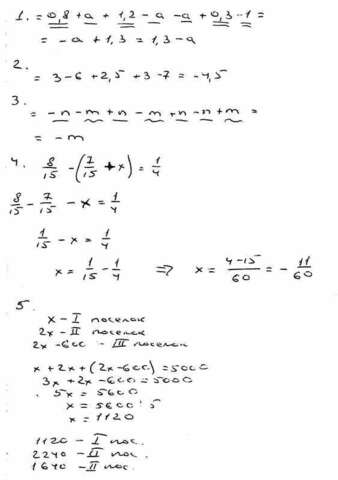 1. = 0,8 + a + 1,2 - a - a + 0,3 - 1 =
= - a + 1,3 = 1,3 - a
2.
= 3 - 6 + 2,5 + 3 - 7 = - 4,5
3.
= - n - m + n - m + n - n + m =
= - m
4. 8/15 - (7/15 + x) = 1/4
8/15 - 7/15 - x = 1/4
1/15 - x = 1/4
x = 1/15 - 1/4 => x = 4-15/60 = - 11/60
5.
x - I поселок
2x - II поселок
2x - 600 - III поселок
x + 2x + (2x - 600) = 5000
3x + 2x - 600 = 5000
5x = 5600
x = 5600 : 5
x = 1120
1120 - I пос.
2240 - II пос.
1640 - II пос.